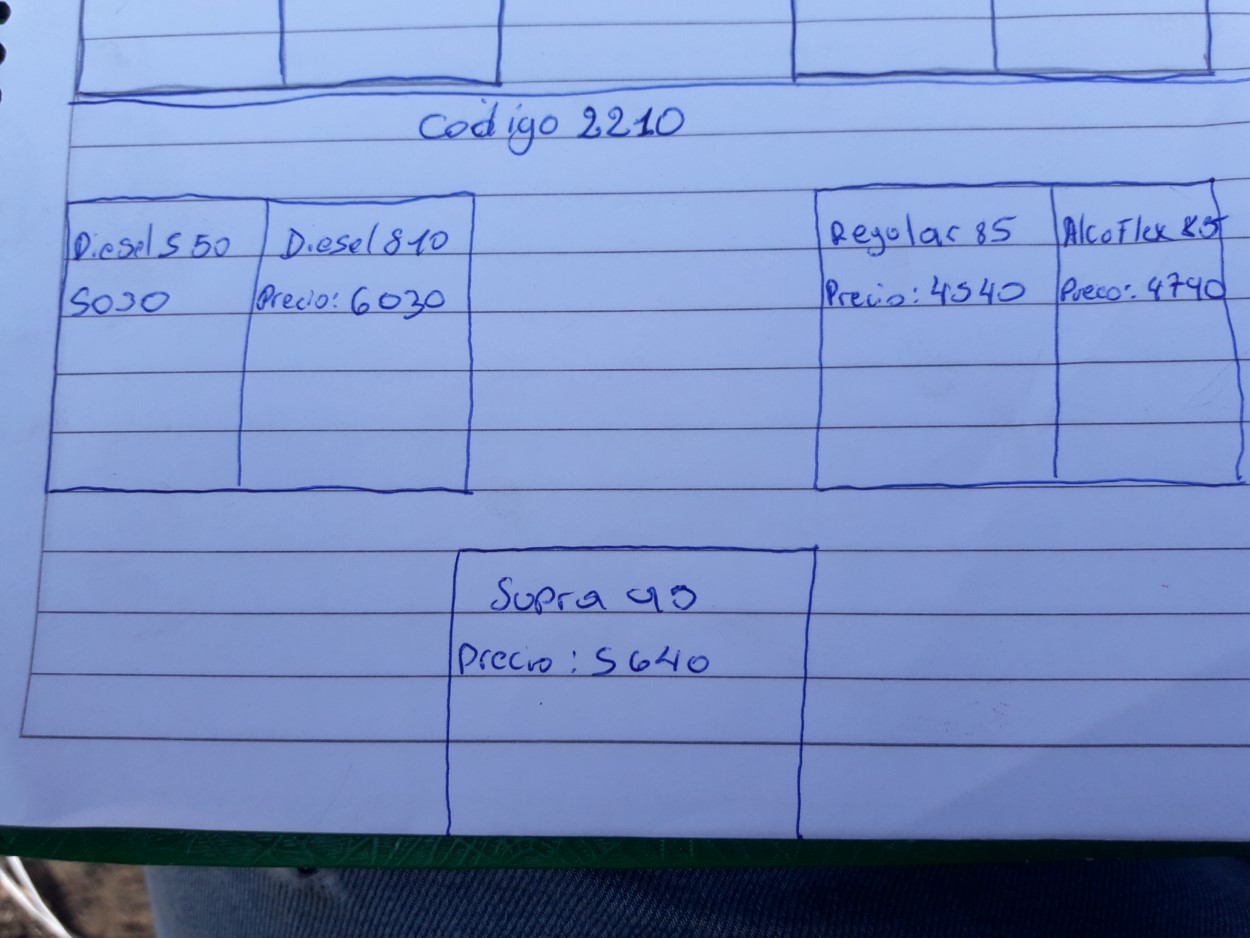 Código 2210
Diesel S 50
5030
Diesel 810
Precio: 6030
Regular 85
Precio: 4540
AlcoFlex 85
Preco: 4740
Supra 90
Precio: 5640